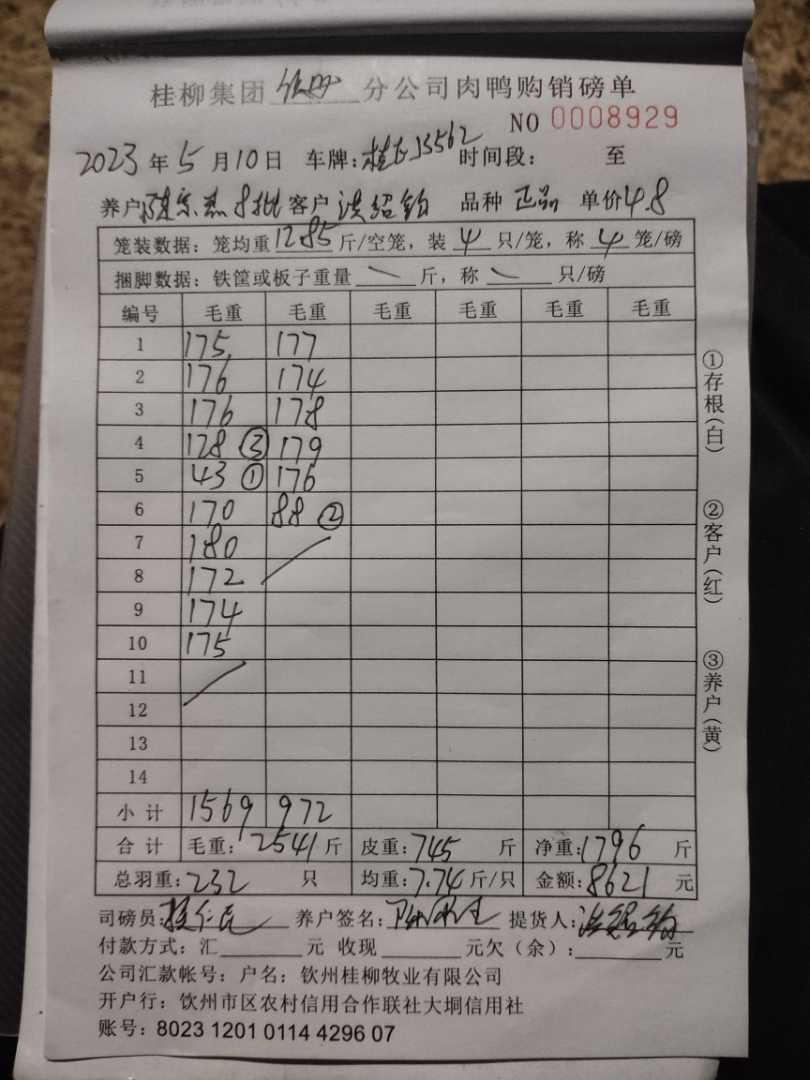 桂柳集团 钦州 分公司肉鸭购销磅单
NO 0008929
2023 年 5 月 10 日 车牌: 桂 J3562 时间段: 至
养户 8批 客户 洪绍钧 品种 正品 单价 4.8
笼装数据: 笼均重 12.85 斤/空笼, 装 4 只/笼, 称 4 笼/磅
捆脚数据: 铁筐或板子重量 \ 斤, 称 \ 只/磅
编号 毛重 毛重 毛重 毛重 毛重 毛重
1 175 177
2 176 174
3 176 178
4 128 ③ 179
5 43 ① 176
6 170 88 ②
7 180
8 172
9 174
10 175
11
12
13
14
小计 1569 972
合计 毛重: 2541 斤 皮重: 745 斤 净重: 1796 斤
总羽重: 232 只 均重: 7.74 斤/只 金额: 8621 元
司磅员: 养户签名: 提货人: 洪绍钧
付款方式: 汇 元 收现 元欠(余): 元
公司汇款帐号: 户名: 钦州桂柳牧业有限公司
开户行: 钦州市区农村信用合作联社大垌信用社
账号: 8023 1201 0114 4296 07
①存根(白)
②客户(红)
③养户(黄)